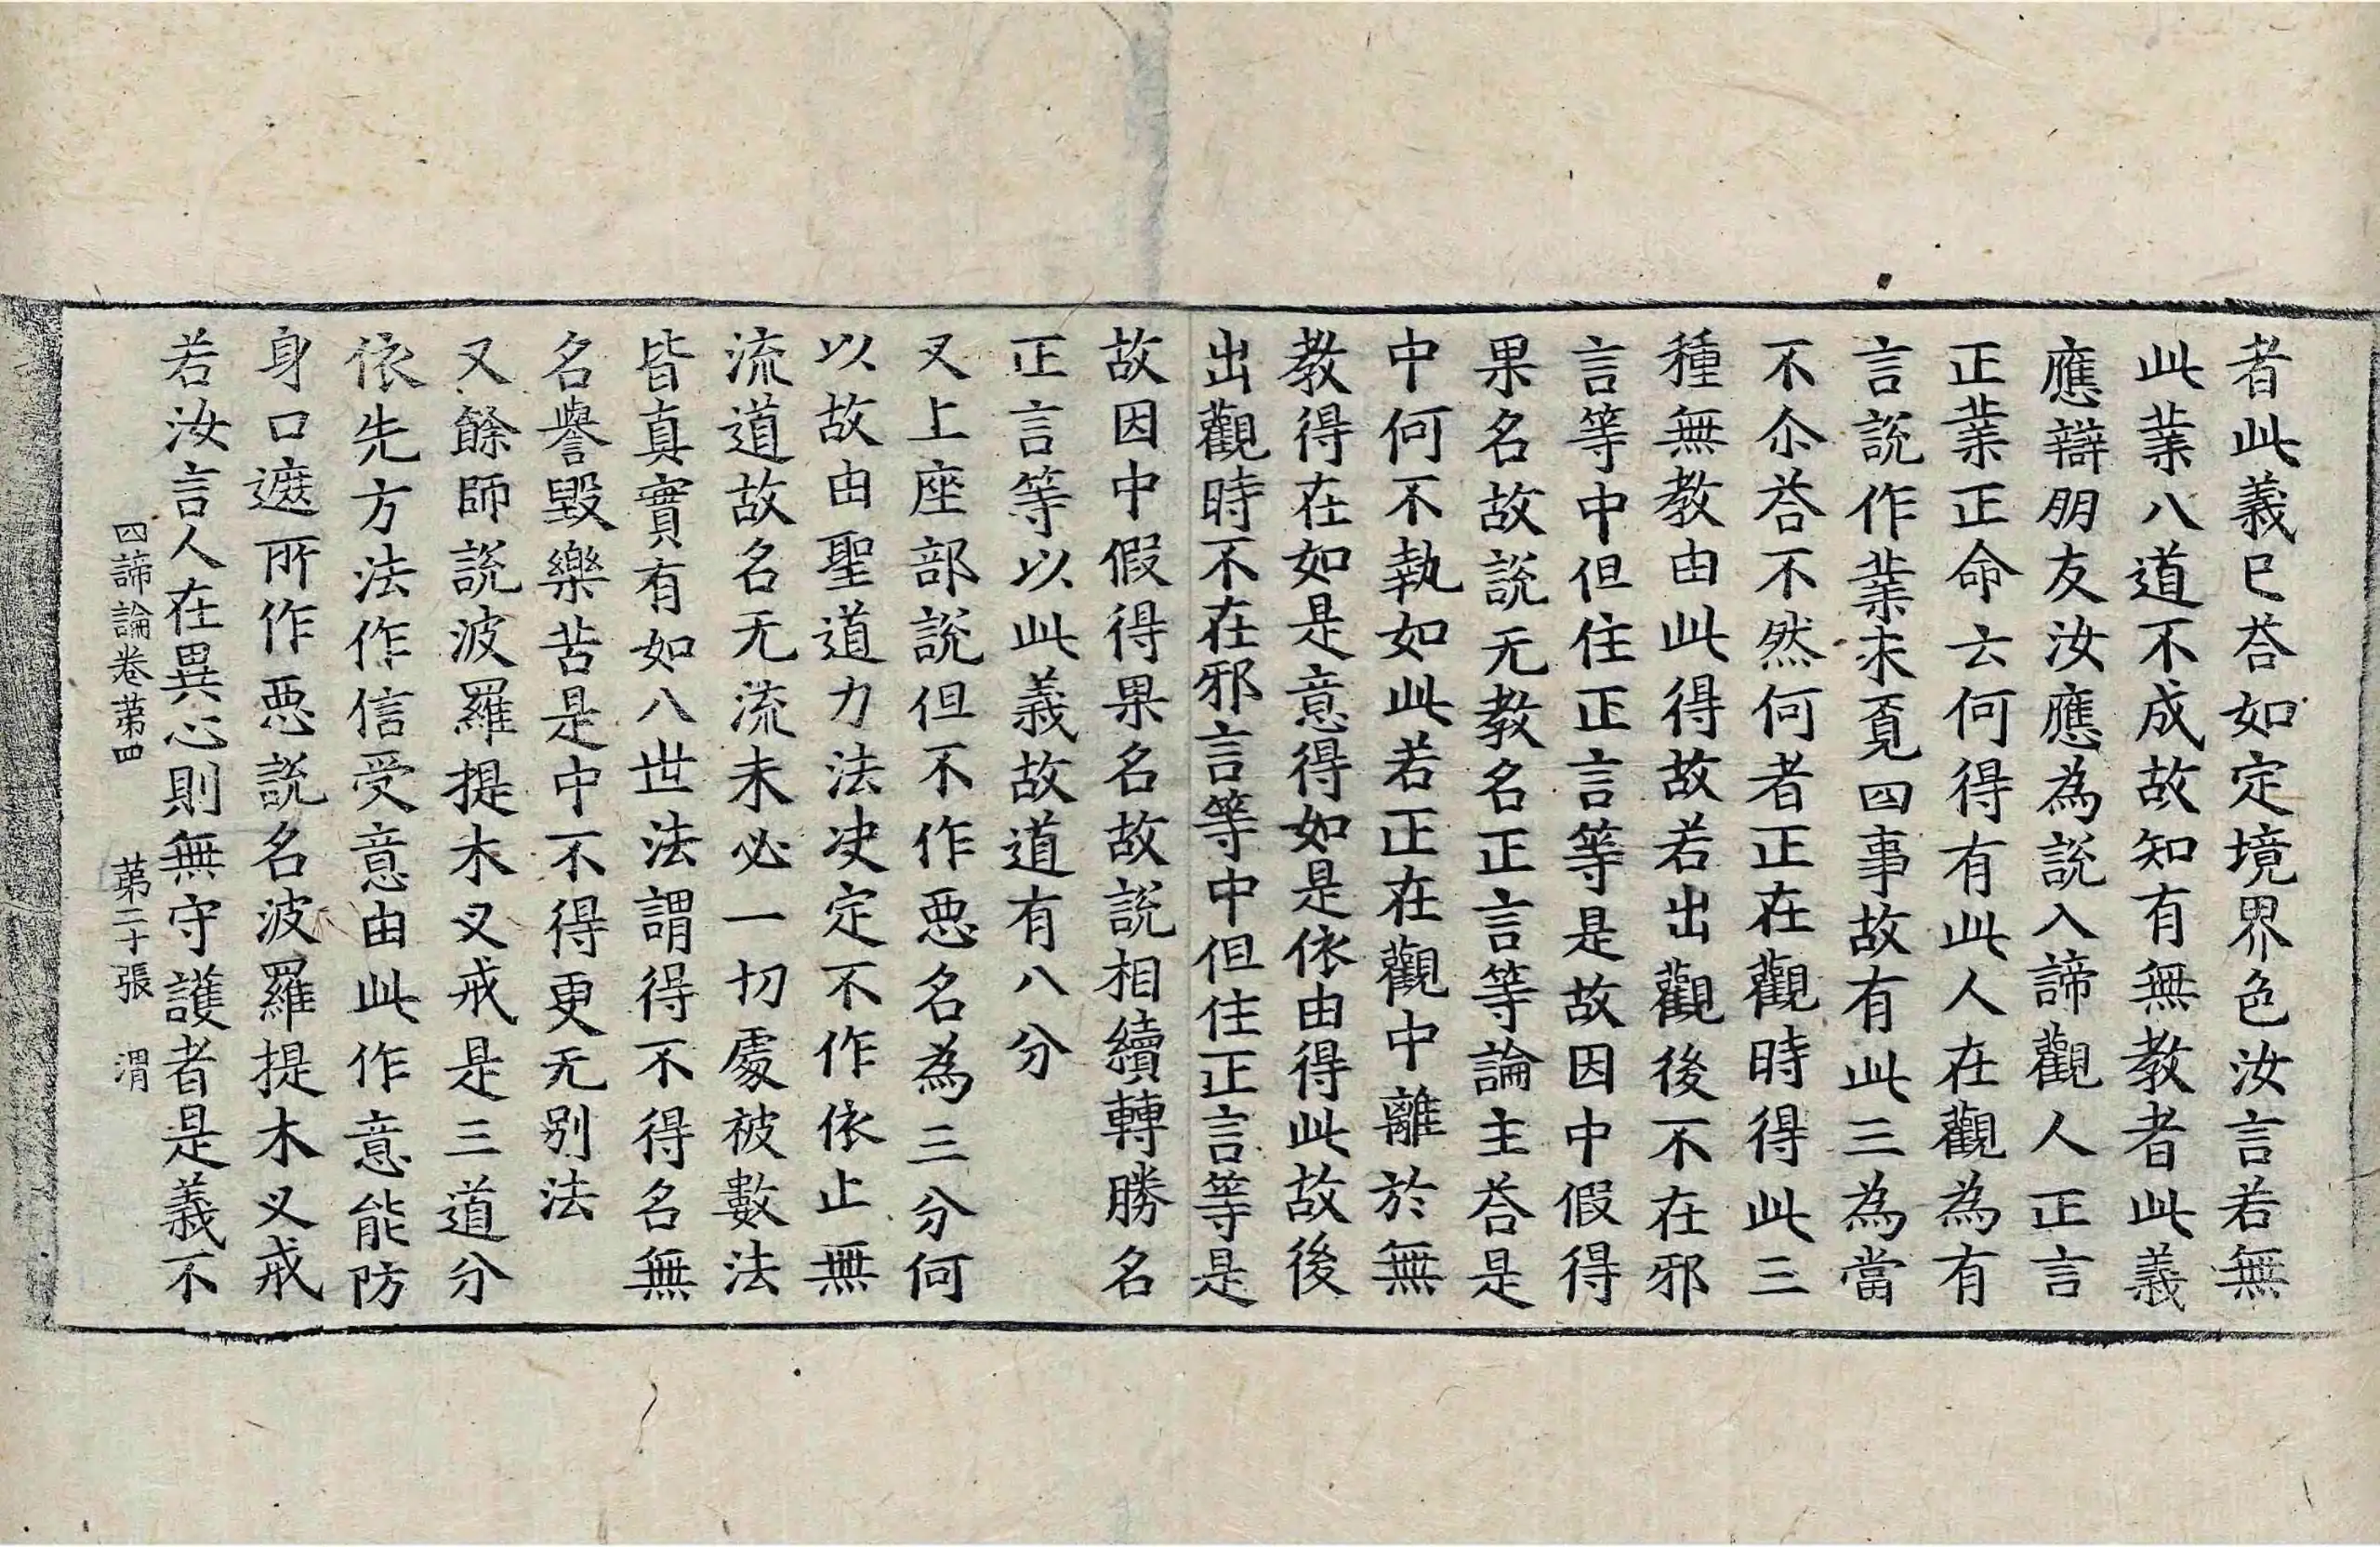 者此義已荅如定境界色汝言若無
此業八道不成故知有無教者此義
應辯朋友汝應為說入諦觀人正言
正業正命云何得有此人在觀為有
言說作業求覔四事故有此三為當
不尒荅不然何者正在觀時得此三
種無教由此得故若出觀後不在邪
言等中但住正言等是故因中假得
果名故說无教名正言等論主荅是
中何不執如此若正在觀中離於無
教得在如是意得如是依由得此故後
出觀時不在邪言等中但住正言等是
故因中假得果名故說相續轉勝名
正言等以此義故道有八分
又上座部說但不作惡名為三分何
以故由聖道力法決定不作依止無
流道故名无流未必一切處被數法
皆真實有如八世法謂得不得名無
名譽毀樂苦是中不得更无別法
又餘師說波羅提木叉戒是三道分
依先方法作信受意由此作意能防
身口遮所作惡說名波羅提木叉戒
若汝言人在異心則無守護者是義不
四諦論卷苐四　苐二十張　渭